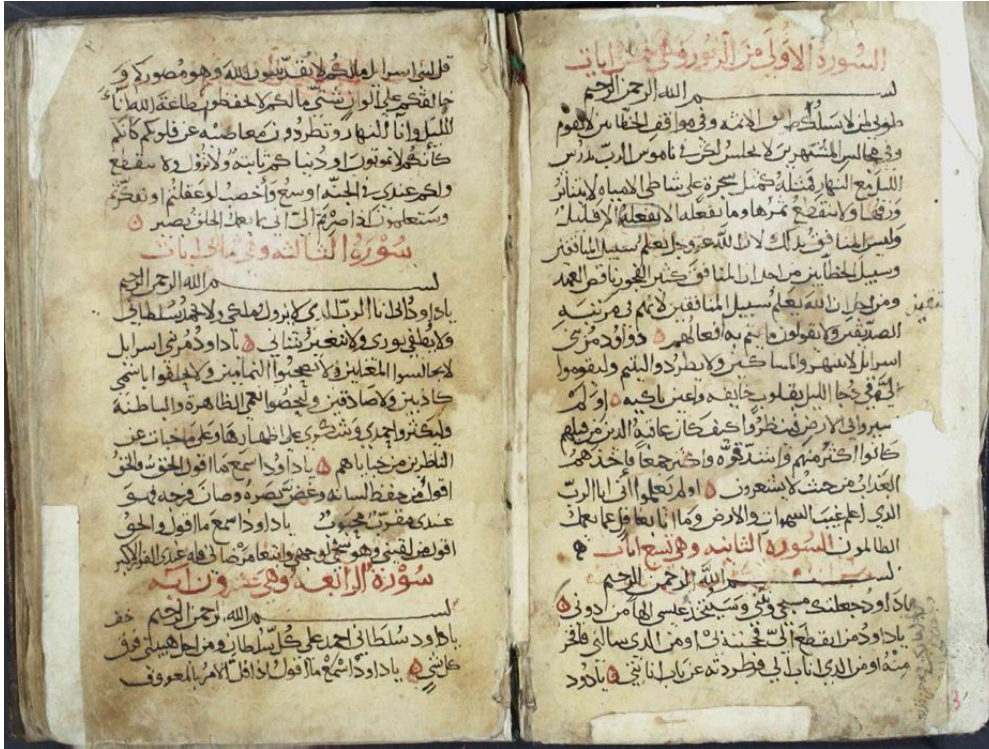 السورة الاولى من الزبور وهي ايات
بسم الله الرحمن الرحيم
طوبى لمن لا يسلك طريق الاثمه وفي مواقف الخطايين لا يقوم
وفي مجالس المستهزين لا يجلس لكن في ناموس الرب يدرس
الليل مع النهار فمثله كمثل شجرة على شاطى المياه لا يتناثر
ورقها ولا ينقطع ثمرها وما يفعله لا يفعله الا قليلك
وليس المنافق بذلك لان الله عز وجل يعلم سبيل المنافقين
وسبيل الخطايين من اجل ان المنافق كثير الفجور ناقض العهد
ومن اجل ان الله يعلم سبيل المنافقين لانهم في مرتبة
الصديقين ولا يقولون افعالهم داود مر بني
اسرايل لا ينتهروا المساكين ولا يطردوا اليتيم وليقوموا
الي في دجا الليل بقلوب خايفه واعين باكيه اولم
يسيروا في الارض فينظروا كيف كان عاقبة الذين من قبلهم
كانوا اكثر منهم واشد قوه واكثر جمعا فاخذهم
العذاب من حيث لا يشعرون اولم يعلموا اني انا الرب
الذي اعلم غيب السموات والارض وما انا بغافل عما يعمل
الظالمون السورة الثانيه وهي تسع ايات
بسم الله الرحمن الرحيم
ياداود جعلتك مسيحي ونبيي وسيتخذ عيسى الها من دوني
ياداود من انقطع الي فخيبته او من الذي سالني فلم
منه او من الذي اناب الي فطردته عن باب انابتي ياداود
قل لبني اسرايل مالكم لا تقدسون الله وهو مصوركم و
خالقكم على الوان شتى مالكم لا تحفظون طاعة الله اناء
الليل واناء النهار وتطردون معاصيه عن قلوبكم كانكم
كانكم لا تموتون او دنياكم ثابته ولا تزول ولا تنقطع
ولكم عندي في الجنه اوسع واخصب لو عقلتم او تفكرتم
وستعلمون اذا صرتم الي اني بما يعمل الخلق بصير
سورة الثالثه وهي ايات
بسم الله الرحمن الرحيم
ياداود اني انا الرب الذي لا يزول ملكي ولا يخمد سلطاني
ولا يطفى نوري ولا يتغير ياداود مر بني اسرايل
لا يجالسوا المغتابين ولا يصحبوا النمامين ولا يحلفوا باسمي
كاذبين ولا صادقين وليحفظوا نعمي الظاهرة والباطنة
وليكثروا حمدي وشكري على اظهارها وعلى ما خبات عن
الناظرين من خباياهم ياداود اسمع ما اقول الحق والحق
اقول من حفظ لسانه وغض بصره وصان فرجه فهو
عندي مقرب محبوب ياداود اسمع ما اقول والحق
اقول من لقيني وهو لوجهي وابتغا مرضاتي فله عندي الفوز الاكبر
سورة الرابعه وهي عشرون ايه
بسم الله الرحمن الرحيم
ياداود سلطاني احمد على كل سلطان ومن اجل هيبتي فرق
كل شي ياداود اسمع ما اقول اذا قل الامر بالمعروف